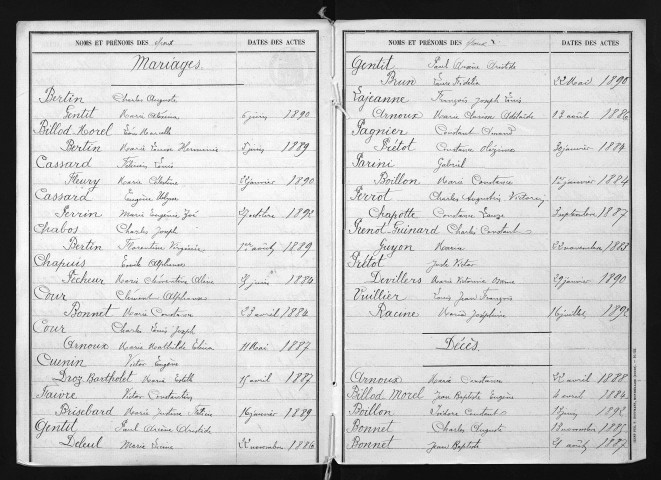 NOMS ET PRÉNOMS DES Époux DATES DES ACTES
Mariages.
Bertin Charles Auguste
Gentit Marie 6 juin 1890
Billod Morel Léon Marcelle
Bertin Marie Louise Herminie 8 juin 1889
Cassard Félicien Louis
Fleury Marie Célestine 21 janvier 1890
Cassard Eugène Ulysse
Perrin Marie Eugénie Zoé 27 octobre 1892
Chabos Charles Joseph
Bertin Florentine Virginie 1er août 1889
Chapuis Emile Alphonse
Pécheur Marie 21 juin 1884
Cour Clément Alphonse
Bonnet Marie Constance 23 avril 1884
Cour Charles Louis Joseph
Arnoux Marie Mathilde 11 Mai 1887
Cuenin Victor Eugène
Droz Bartholet Marie Estelle 15 avril 1887
Faivre Victor Constantin
Brisebard Marie Justine 16 janvier 1889
Gentit Paul Arsène Aristide
Deleul Marie 22 novembre 1886
NOMS ET PRÉNOMS DES Époux DATES DES ACTES
Gentit Paul Arsène Aristide
Brun Laure Fidélia 22 Mai 1890
Lajeanne François Joseph Louis
Arnoux Marie Clarisse Adélaïde 17 août 1886
Pagnier Constant
Piétot Constance 30 janvier 1884
Parini Gabriel
Boillon Marie Constance 17 janvier 1884
Perrot Charles Augustin Victorin
Chapotte Constance Louise 3 septembre 1887
Prenot-Guinard Charles Constant
Guyon Maria 22 novembre 1883
Prétot Jules Victor
Devillers Marie Victorine 29 janvier 1890
Vuillier Louis Jean François
Racine Maria Joséphine 16 juillet 1892
Décès.
Arnoux Marie Constance 22 avril 1888
Billod Morel Jean Baptiste Eugène 4 avril 1884
Boillon Isidore Constant 18 juin 1892
Bonnet Charles Auguste 18 novembre 1885
Bonnet Jean Baptiste 21 août 1887